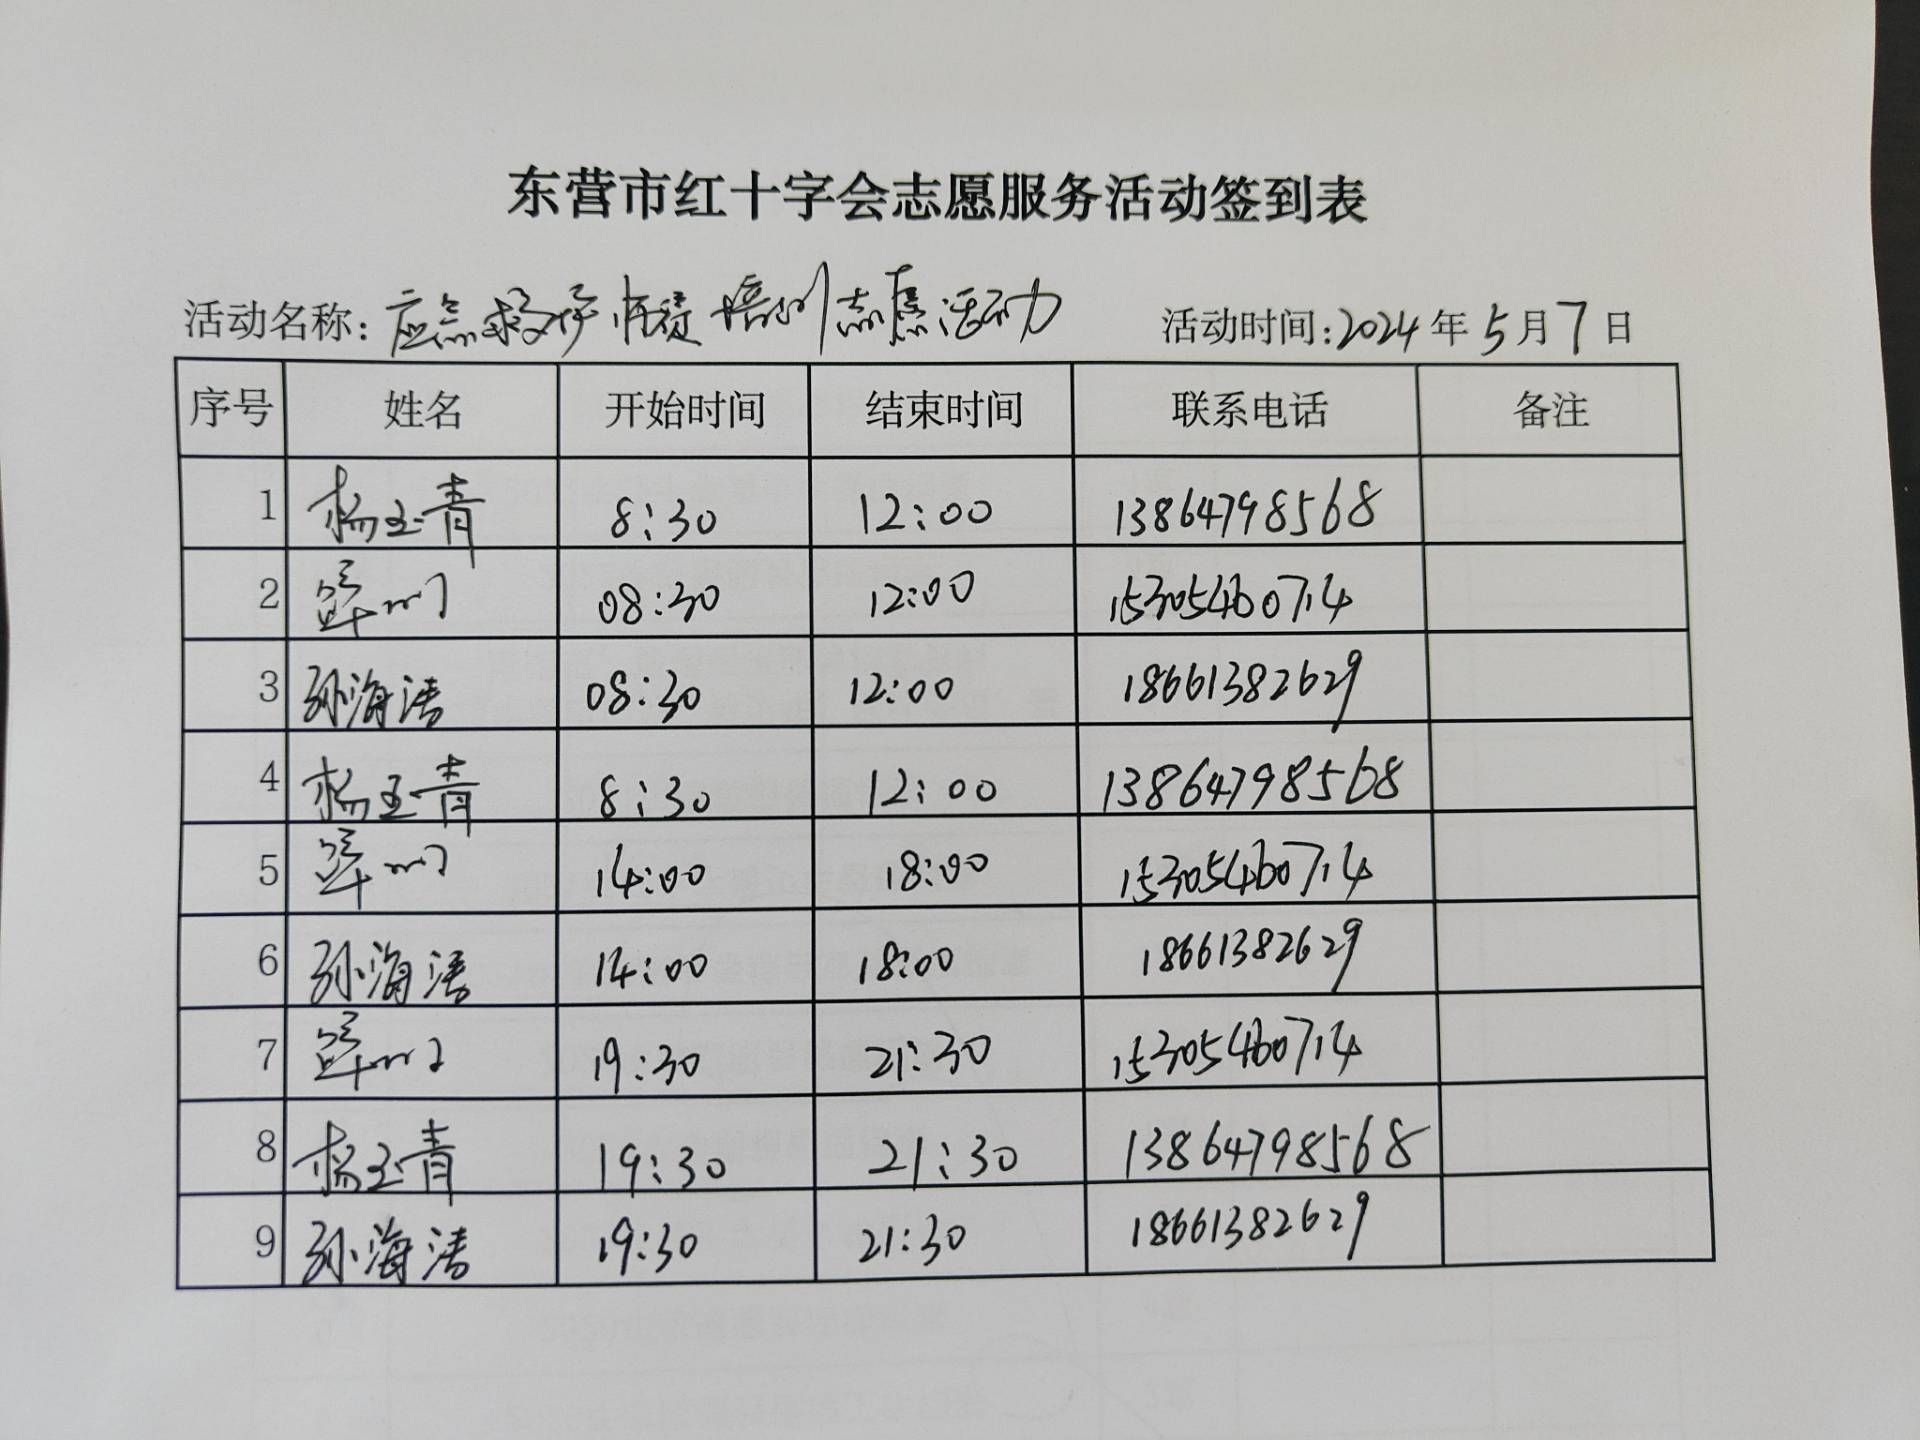 东营市红十字会志愿服务活动签到表
活动名称:应急救护师资培训志愿活动 活动时间:2024年5月7日
序号 姓名 开始时间 结束时间 联系电话 备注
1 杨玉青 8:30 12:00 13864798568
2 08:30 12:00 15305460714
3 孙海清 08:30 12:00 18661382629
4 杨玉青 8:30 12:00 13864798568
5 14:00 18:00 15305460714
6 孙海清 14:00 18:00 18661382629
7 19:30 21:30 15305460714
8 杨玉青 19:30 21:30 13864798568
9 孙海清 19:30 21:30 18661382629